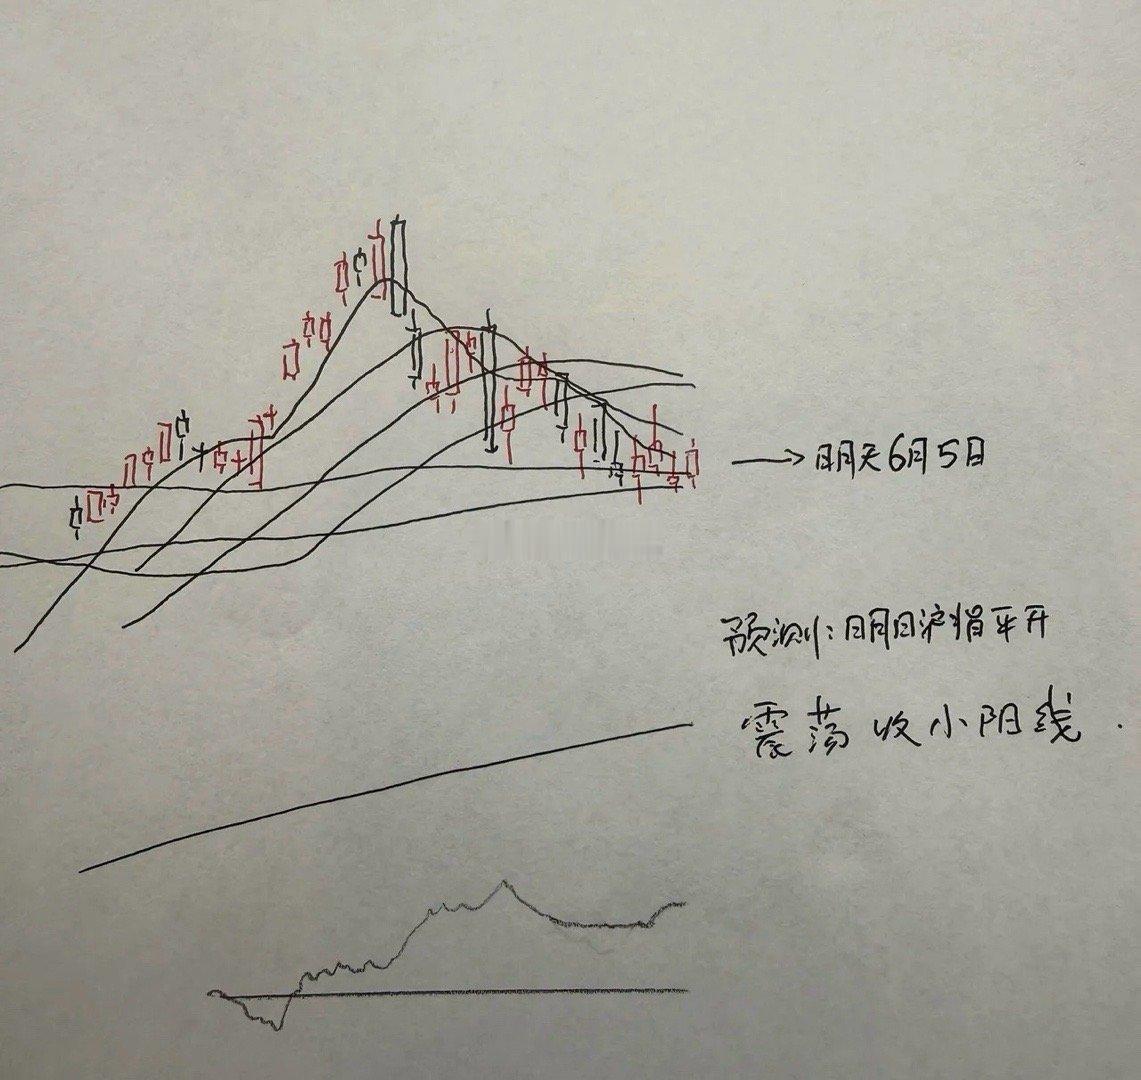 →明天6月5日
预测:明日沪指平开
震荡收小阳线.